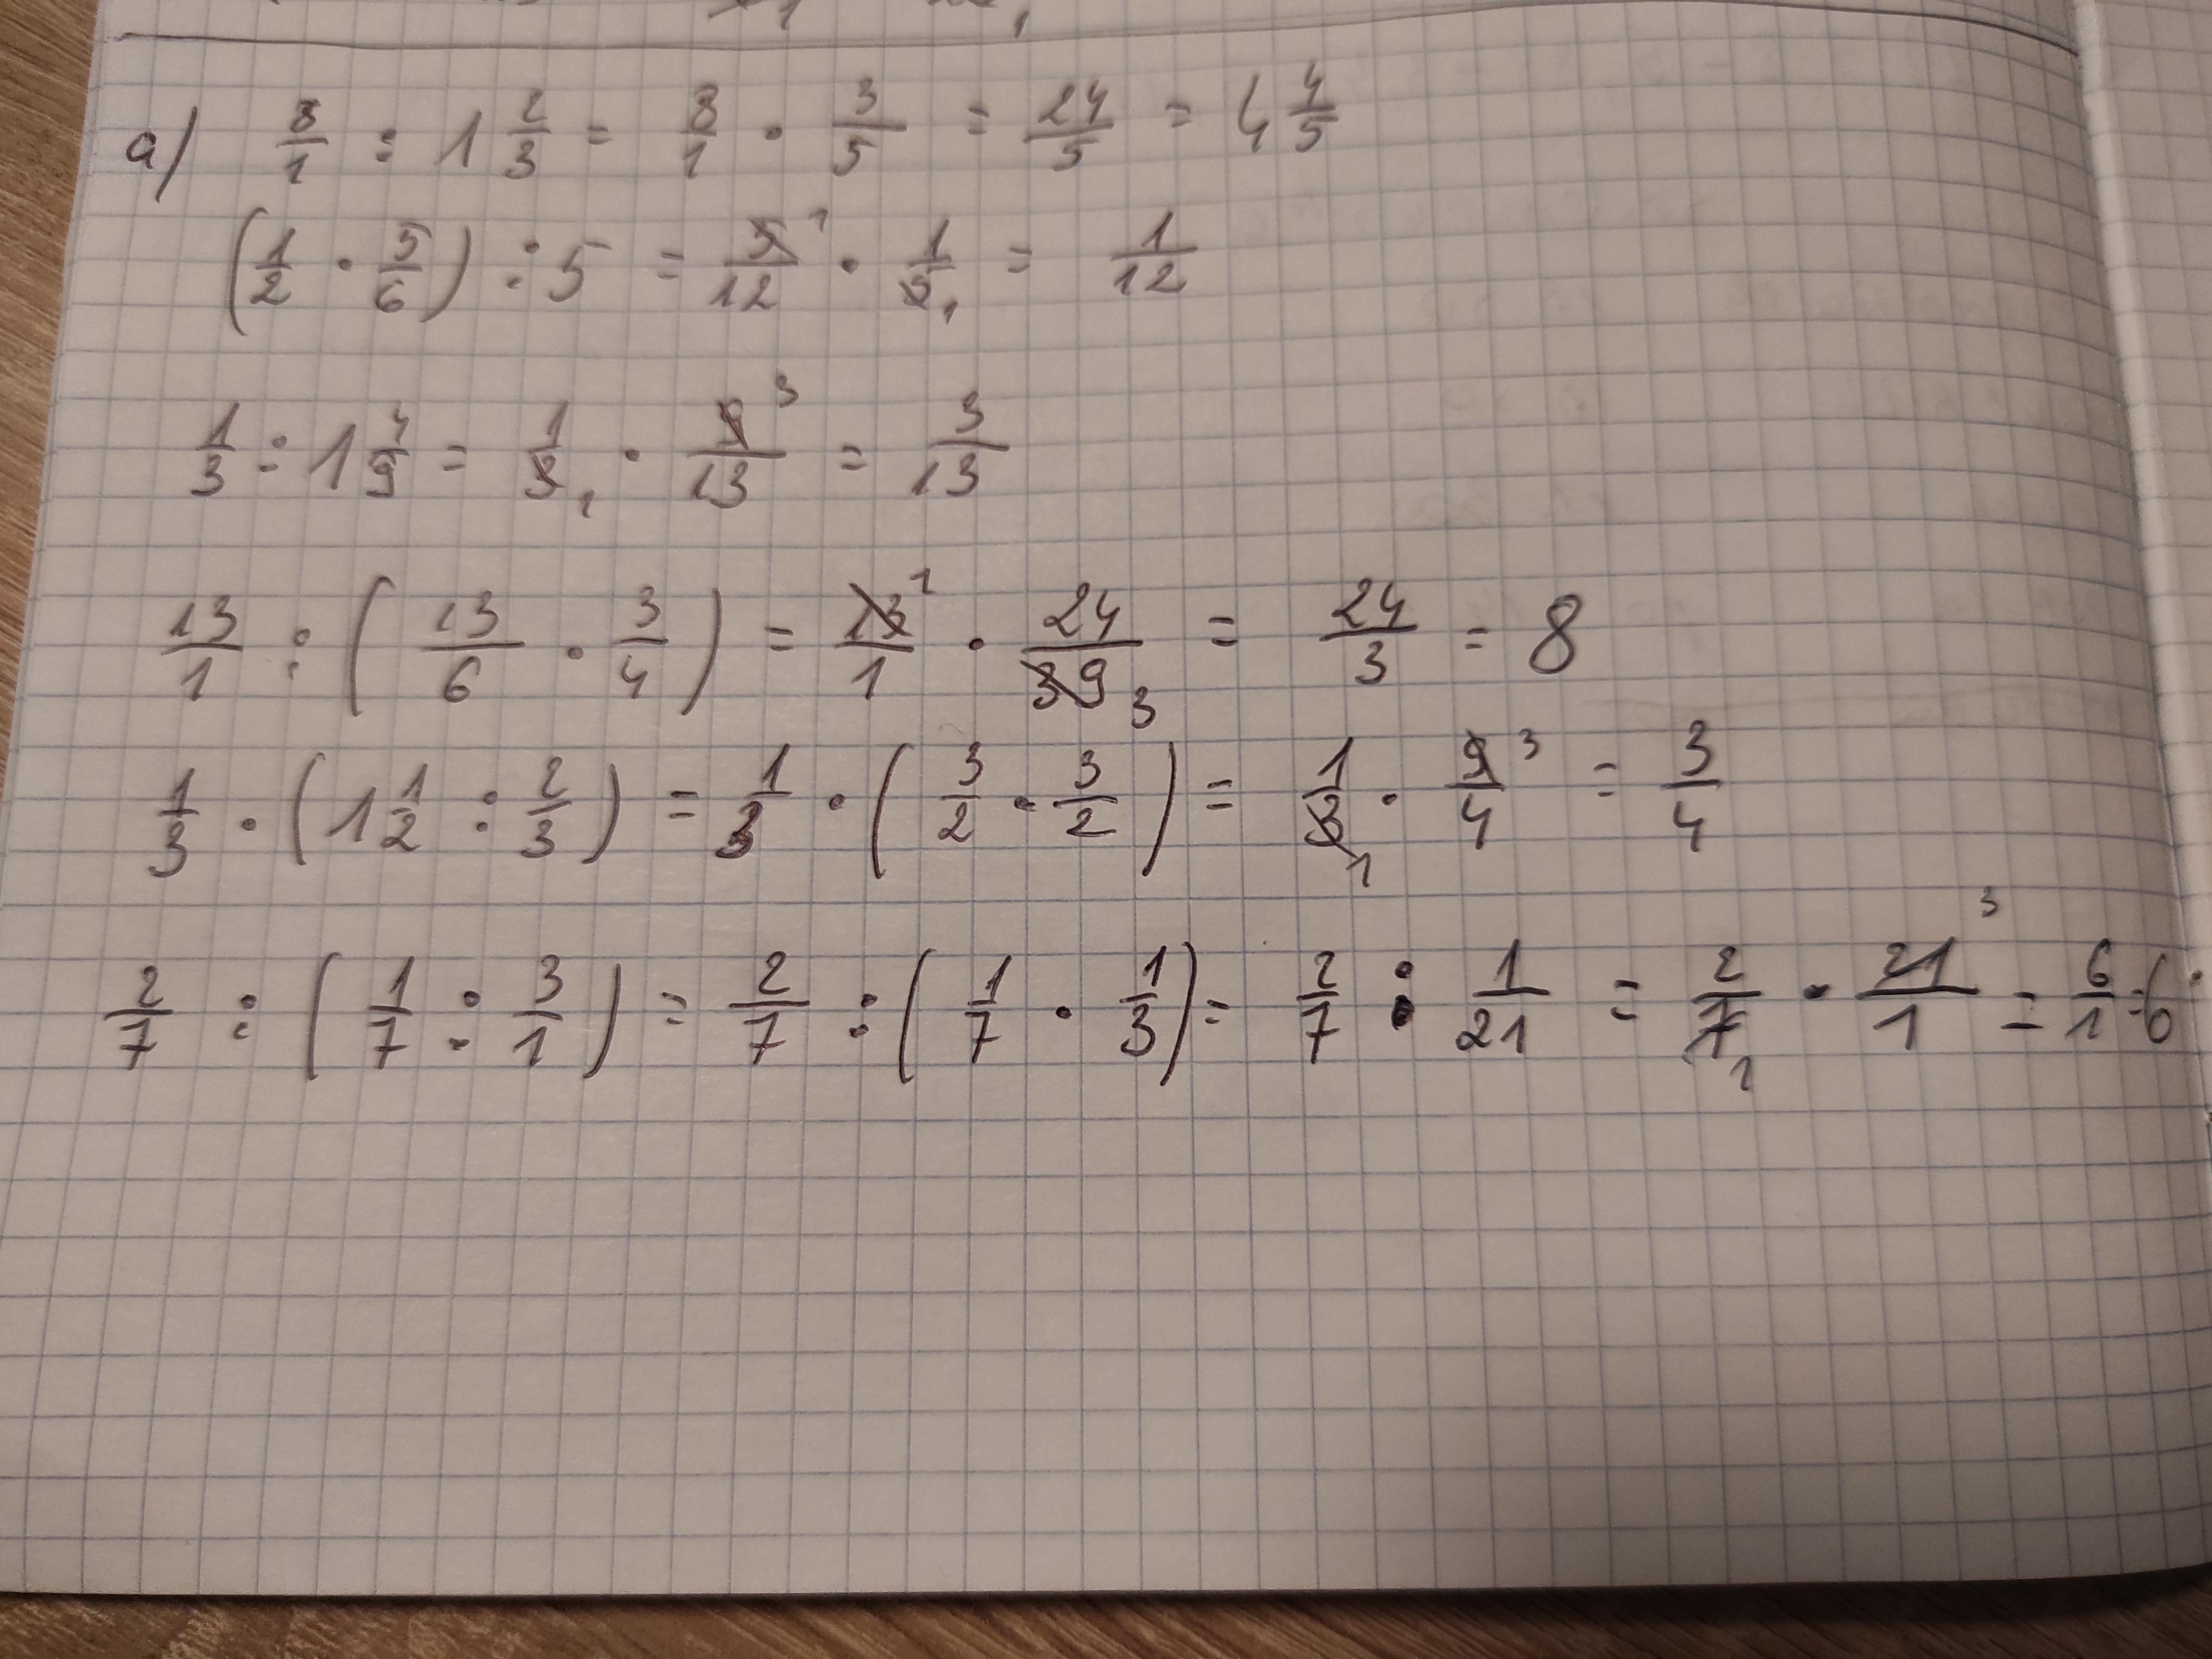 a) 8/1 : 1 2/3 = 8/1 · 3/5 = 24/5 = 4 4/5
(1/2 · 5/6) : 5 = 5/12 ¹ · 1/5 ₁ = 1/12
1/3 : 1 4/9 = 1/3 ₁ · 9/13 ³ = 3/13
13/1 : (13/6 · 3/4) = 13/1 ¹ · 24/39 ₃ = 24/3 = 8
1/3 · (1 1/2 : 2/3) = 1/3 · (3/2 · 3/2) = 1/3 ₁ · 9/4 ³ = 3/4
2/7 : (1/7 : 3/1) = 2/7 : (1/7 · 1/3) = 2/7 : 1/21 = 2/7 ₁ · 21/1 ³ = 6/1 = 6